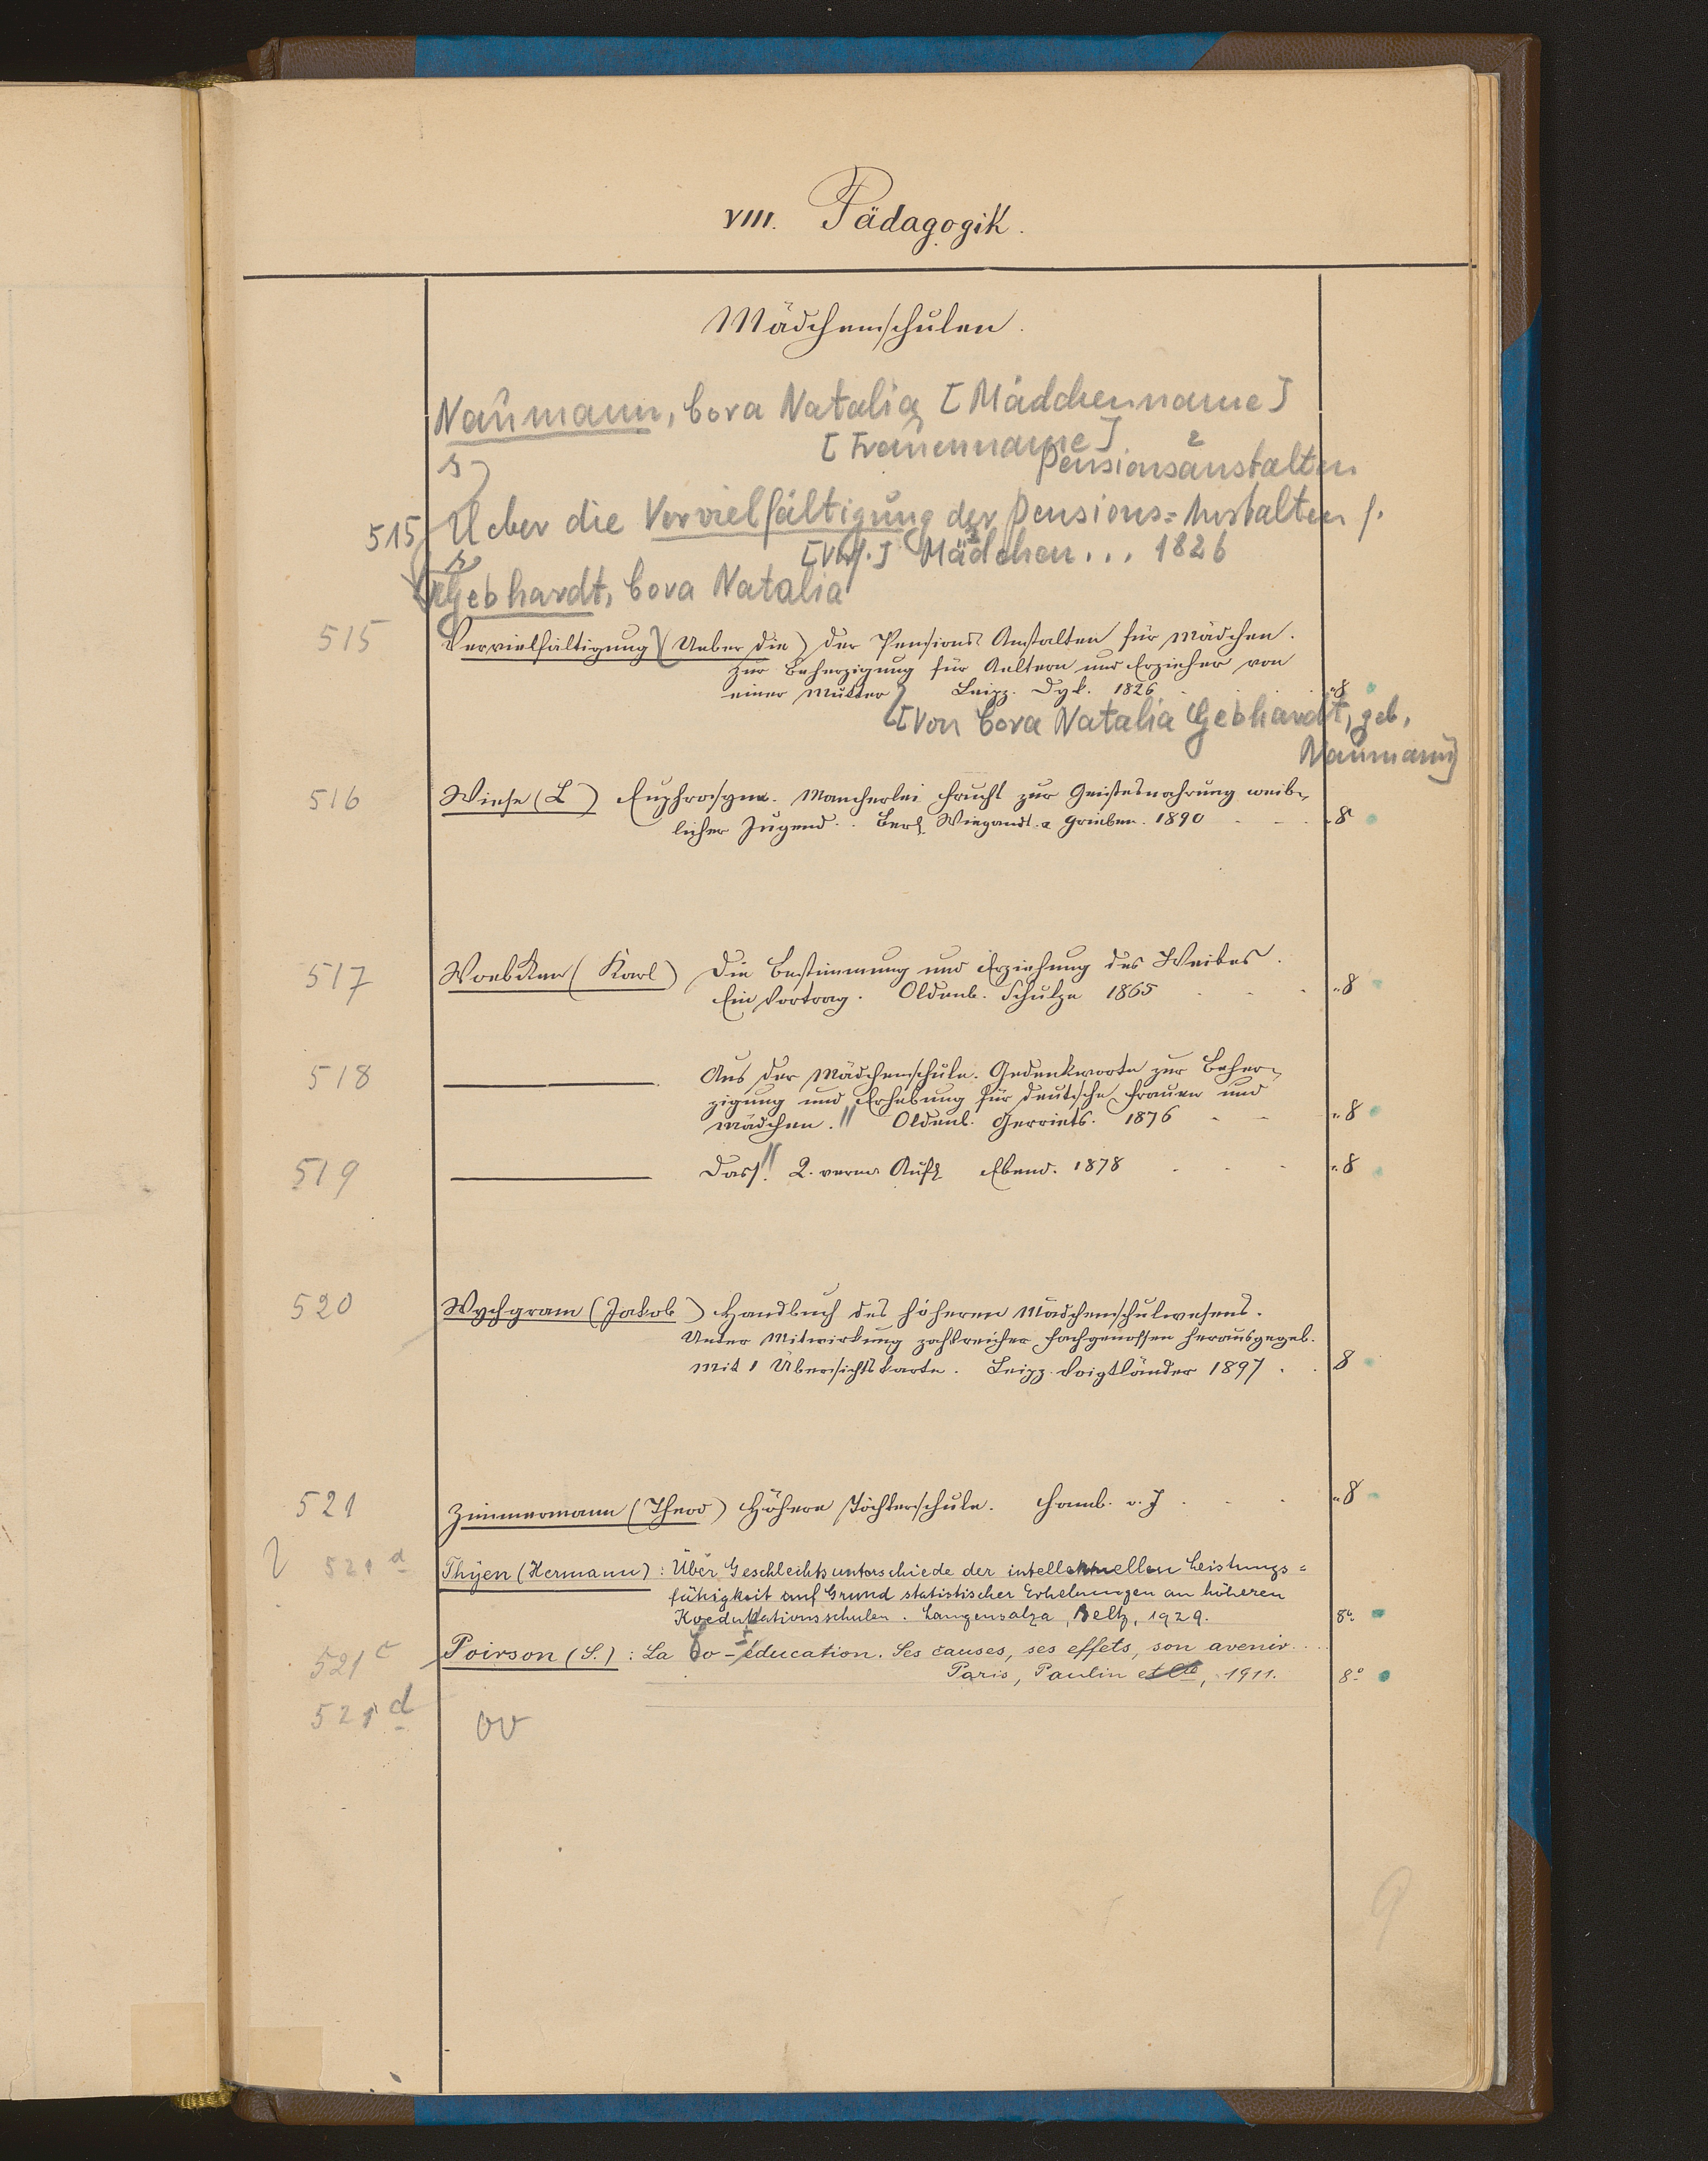 VIII. Pädagogik.
Mädchenschulen.
Naumann, Cora Natalia [Mädchenname]
[Frauenname]
s) Pensionsanstalten 2
515 Ueber die Vervielfältigung der Pensions=Anstalten f.
[Verf.] Mädchen... 1826
Gebhardt, Cora Natalia
515 Vervielfältigung (Ueber die) der Pensions Anstalten für Mädchen.
Zur Beherzigung für Aeltern und Erzieher von
einer Mutter Leipz. Dyk. 1826 "8
[Von Cora Natalia Gebhardt, geb.
Naumann]
516 Wiese (L) Euphrosyne. Mancherlei Frucht zur Geistesnahrung weib-
licher Jugend. Berl Wiegandt & Grieben. 1890 "8
517 Woebken (Karl) Die Bestimmung und Erziehung des Weibes.
Ein Vortrag. Oldenb. Schulze 1865 "8
518 ——— Aus der Mädchenschule. Gedenkworte zur Beher-
zigung und Erhebung für deutsche Frauen und
Mädchen. // Oldenb. Gerriets. 1876 "8
519 ——— Dass. // 2. verm Aufl Ebend. 1878 "8
520 Wychgram (Jakob) Handbuch des höheren Mädchenschulwesens.
Unter Mitwirkung zahlreicher Fachgenossen herausgegeb.
Mit 1 Übersichtskarte. Leipz. Voigtländer 1897 8
521 Zimmermann (Theod) Höhere Töchterschule. Hamb. o. J "8
521 d Thyen (Hermann): Über Geschlechtsunterschiede der intellektuellen Leistungs=
fähigkeit auf Grund statistischer Erhebungen an höheren
Koedukationsschulen. Langensalza, Beltz, 1929. 8°
521 c Poirson (S.): La Co-éducation. Ses causes, ses effets, son avenir....
Paris, Paulin et Cie, 1911. 8°
521 d